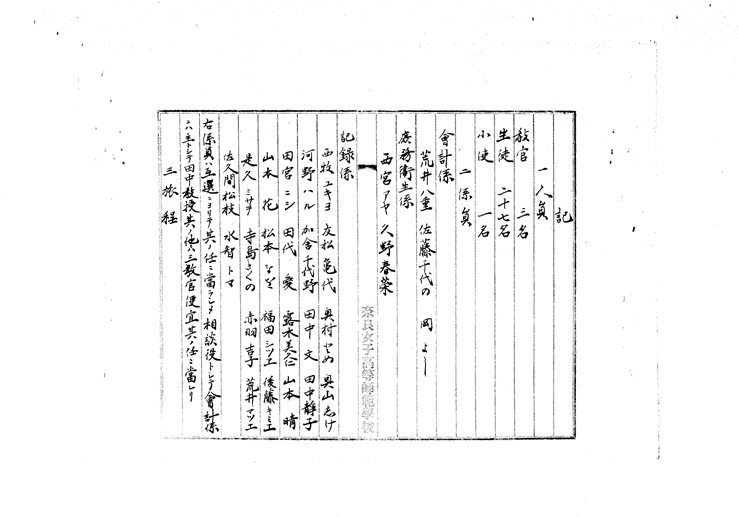 記
一人員
教官 三名
生徒 二十七名
小使 一名
二係員
會計係
荒井八重 佐藤千代の 岡よし
庶務衛生係
西宮アヤ 久野春榮
記録係
西牧ユキヨ 友松亀代 奥村とめ 奥山志げ
河野ハル 加舎千代野 田中文 田中靜子
田宮ニシ 田代愛 露木美仁 山本晴
山本花 松本なを 福田シヅエ 後藤キミエ
是久ミサヲ 寺島きくの 赤羽吉子 荒井マツエ
佐久間松枝 水智トマ
右係員ハ互選ニヨリテ其ノ任ニ當ラシメ相談役トシテ會計係
ハ主トシテ田中教授其ノ他ハ三教官便宜其ノ任ニ當レリ
三旅程
奈良女子高等師範學校